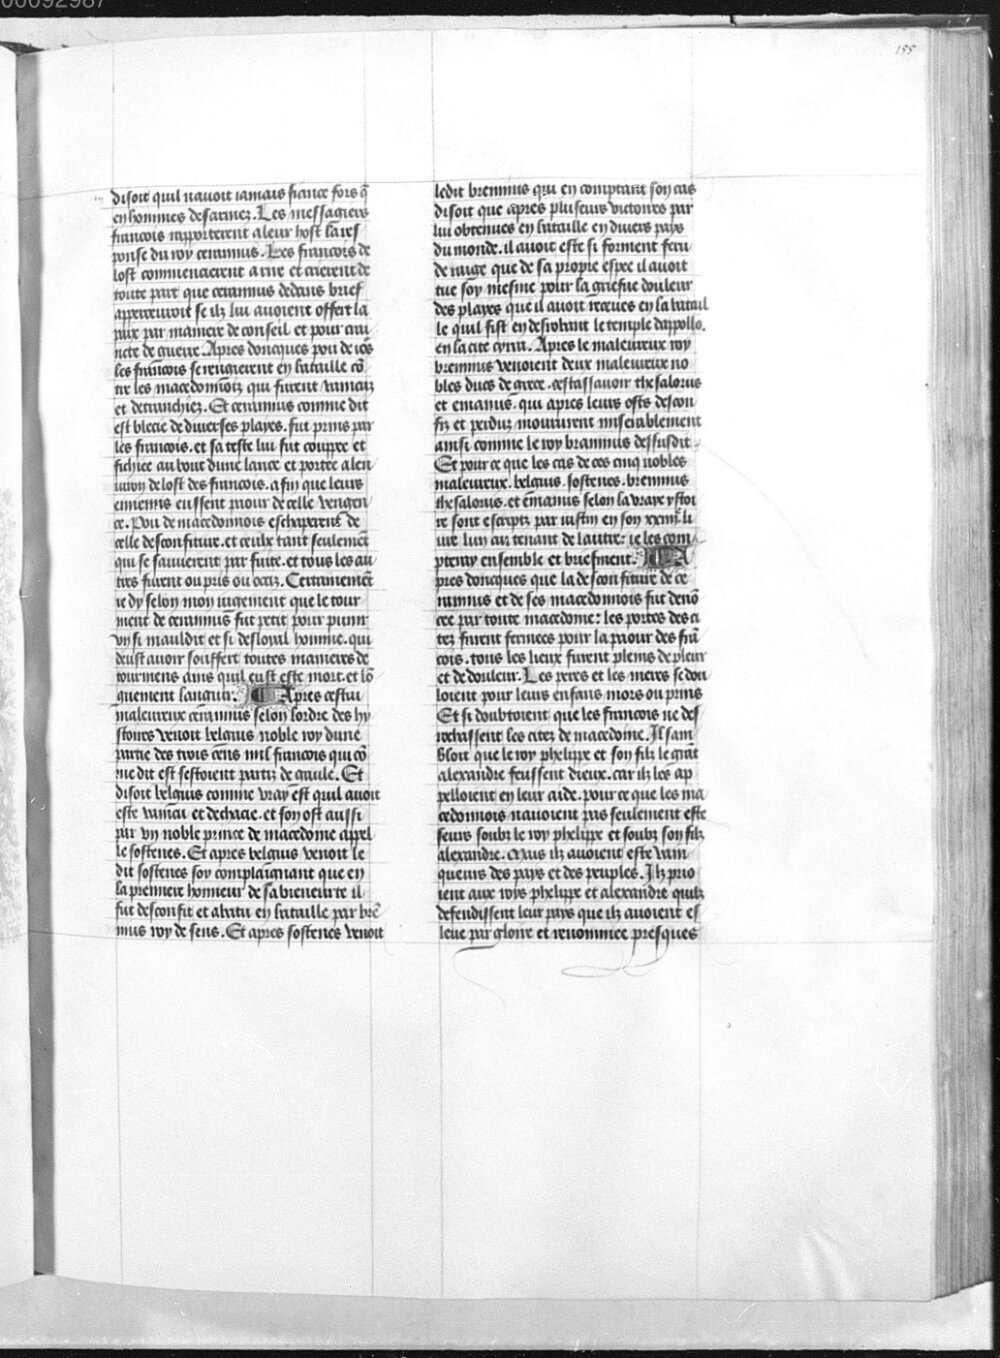 00092987
155
disoit quil nauoit iamais fiance fors q̃
en hommes desarmez. Les messagiers
francois rapporterent a leur host la res
ponse du roy ceraunus. Les francois de
lost commencierent a rire et crierent de
toute part que ceraunus dedans brief
apperceuroit se ilz lui auoient offert la
paix par maniere de conseil et pour crai
ncte de guerre. Apres doncques pou de io᷑s
les francois se rengierent en bataille cõ
tre les macedonnois qui furent vaincuz
et detranchiez. Et ceraunus comme dit
est blecie de diuerses playes. fut prins par
les francois. et sa teste lui fut couppee et
fichiee au bout dune lance et portee a len
uiron de lost des francois. a fin que leurs
ennemis eussent paour de celle vengen
ce. Pou de macedonnois eschaperent de
celle desconfiture. et ceulx tant seulemẽt
qui se sauuerent par fuite. et tous les au
tres furent ou pris ou occiz. Certainemẽt
ie dy selon mon iugement que le tour
ment de ceraunus fut petit pour punir
vn si mauldit et si desloial homme. qui
deust auoir souffert toutes manieres de
tourmens ains quil eust este mort. et lõ
guement languir. Apres cestui
maleureux ceraunus selon lordre des hy
stoires venoit belgius noble roy dune
partie des trois cens mil francois qui cõ
me dit est sestoient partiz de gaule. Et
disoit belgius comme vray est quil auoit
este vaincu et dechacie. et son ost aussi
par vn noble prince de macedoine appel
le sostenes. Et apres belgius venoit le
dit sostenes soy complaignant que en
la premiere honneur de sa bieneurte il
fut desconfit et abatu en bataille par brẽ
mus roy de sens. Et apres sostenes venoit
ledit brennius qui en comptant son cas
disoit que apres pluseurs victoires par
lui obtenues en bataille en diuers pays
du monde. il auoit este si forment feru
de raige que de sa propre espee il auoit
tue soy mesme pour la griefue douleur
des playes que il auoit receues en la batail
le quil fist en desrobant le temple dappollo.
en la cite cyrra. Apres le maleureux roy
brennius venoient deux maleureux no
bles ducs de grece. cestassauoir thesalorus
et emanus. qui apres leurs osts descon
fiz et perduz moururent miserablement
ainsi comme le roy brannius dessusdit.
Et pour ce que les cas de ces cinq nobles
maleureux. belgius. sostenes. brennius
thesalorus. et emanus selon la vraye ystoi
re sont escriptz par iustin en son xxiiij. li
ure lun au tenant de lautre: ie les com
pteray ensemble et briefment. A
pres doncques que la desconfiture de ce
raunus et de ses macedonnois fut denõ
cee par toute macedoine: les portes des ci
tez furent fermees pour la paour des frã
cois. tous les lieux furent pleins de pleur
et de douleur. Les peres et les meres se dou
loient pour leurs enfans mors ou prins
Et si doubtoient que les francois ne des
rochassent les citez de macedoine. Il sam
bloit que le roy phelippe et son filz le grãt
alexandre feussent dieux. car ilz les ap
pelloient en leur aide. pour ce que les ma
cedonnois nauoient pas seulement este
seurs soubz le roy phelippe et soubz son filz
alexandre. Mais ilz auoient este vain
queurs des pays et des peuples. Ilz prio
ient aux roys phelippe et alexandre quilz
defendissent leur pays que ilz auoient es
leue par gloire et renommee presques